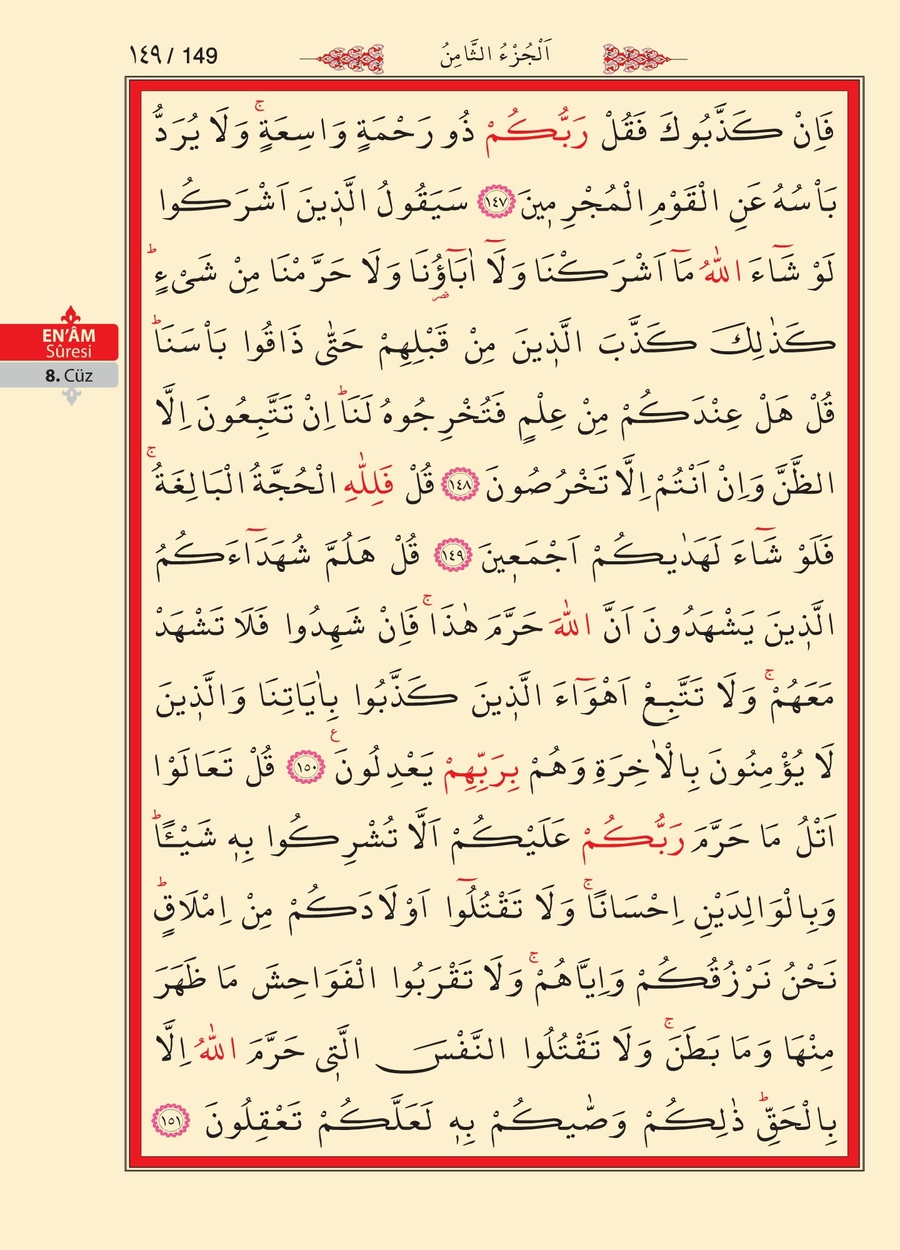 ١٤٩ / 149
اَلْجُزْءُ الثَّامِنُ
فَاِنْ كَذَّبُوكَ فَقُلْ رَبُّكُمْ ذُو رَحْمَةٍ وَاسِعَةٍۚ وَلَا يُرَدُّ
بَأْسُهُ عَنِ الْقَوْمِ الْمُجْرِم۪ينَ ﴿١٤٧﴾ سَيَقُولُ الَّذ۪ينَ اَشْرَكُوا
لَوْ شَٓاءَ اللّٰهُ مَٓا اَشْرَكْنَا وَلَٓا اٰبَٓاؤُ۬نَا وَلَا حَرَّمْنَا مِنْ شَيْءٍۜ
كَذٰلِكَ كَذَّبَ الَّذ۪ينَ مِنْ قَبْلِهِمْ حَتّٰى ذَاقُوا بَأْسَنَاۜ
قُلْ هَلْ عِنْدَكُمْ مِنْ عِلْمٍ فَتُخْرِجُوهُ لَنَاۜ اِنْ تَتَّبِعُونَ اِلَّا
الظَّنَّ وَاِنْ اَنْتُمْ اِلَّا تَخْرُصُونَ ﴿١٤٨﴾ قُلْ فَلِلّٰهِ الْحُجَّةُ الْبَالِغَةُۚ
فَلَوْ شَٓاءَ لَهَدٰيكُمْ اَجْمَع۪ينَ ﴿١٤٩﴾ قُلْ هَلُمَّ شُهَدَٓاءَكُمُ
الَّذ۪ينَ يَشْهَدُونَ اَنَّ اللّٰهَ حَرَّمَ هٰذَاۚ فَاِنْ شَهِدُوا فَلَا تَشْهَدْ
مَعَهُمْۚ وَلَا تَتَّبِعْ اَهْوَٓاءَ الَّذ۪ينَ كَذَّبُوا بِاٰيَاتِنَا وَالَّذ۪ينَ
لَا يُؤْمِنُونَ بِالْاٰخِرَةِ وَهُمْ بِرَبِّهِمْ يَعْدِلُونَ ع ﴿١٥٠﴾ قُلْ تَعَالَوْا
اَتْلُ مَا حَرَّمَ رَبُّكُمْ عَلَيْكُمْ اَلَّا تُشْرِكُوا بِه۪ شَيْـًٔاۜ
وَبِالْوَالِدَيْنِ اِحْسَانًاۚ وَلَا تَقْتُلُٓوا اَوْلَادَكُمْ مِنْ اِمْلَاقٍۜ
نَحْنُ نَرْزُقُكُمْ وَاِيَّاهُمْۚ وَلَا تَقْرَبُوا الْفَوَاحِشَ مَا ظَهَرَ
مِنْهَا وَمَا بَطَنَۚ وَلَا تَقْتُلُوا النَّفْسَ الَّت۪ي حَرَّمَ اللّٰهُ اِلَّا
بِالْحَقِّۜ ذٰلِكُمْ وَصّٰيكُمْ بِه۪ لَعَلَّكُمْ تَعْقِلُونَ ﴿١٥١﴾
EN'ÂM
Sûresi
8. Cüz